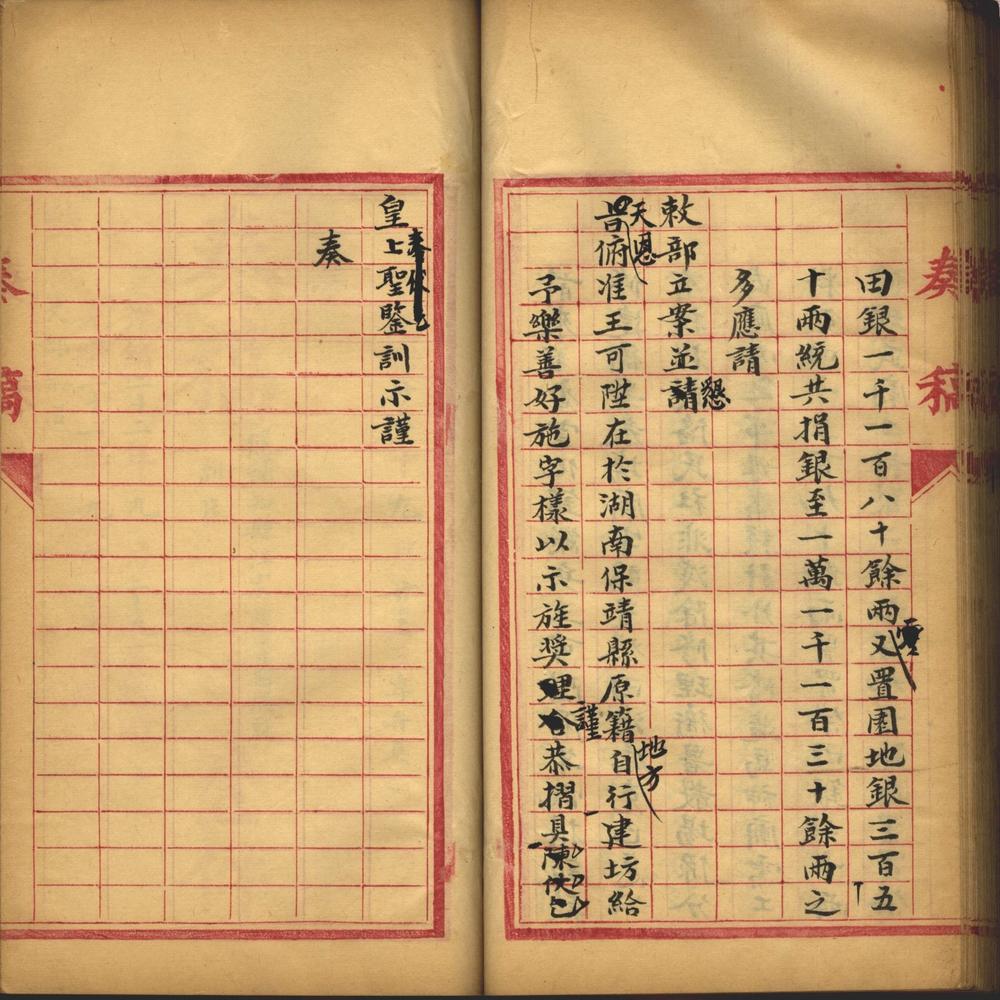 奏稿
田銀一千一百八十餘兩又置園地銀三百五
十兩統共捐銀至一萬一千一百三十餘兩之
多應請
敕部立案並請懇
天恩
俯准王可陞在於湖南保靖縣原籍地方自行建坊給
予樂善好施字樣以示旌獎理合謹恭摺具陳伏乞
皇上聖鑒訓示謹
奏
奏稿